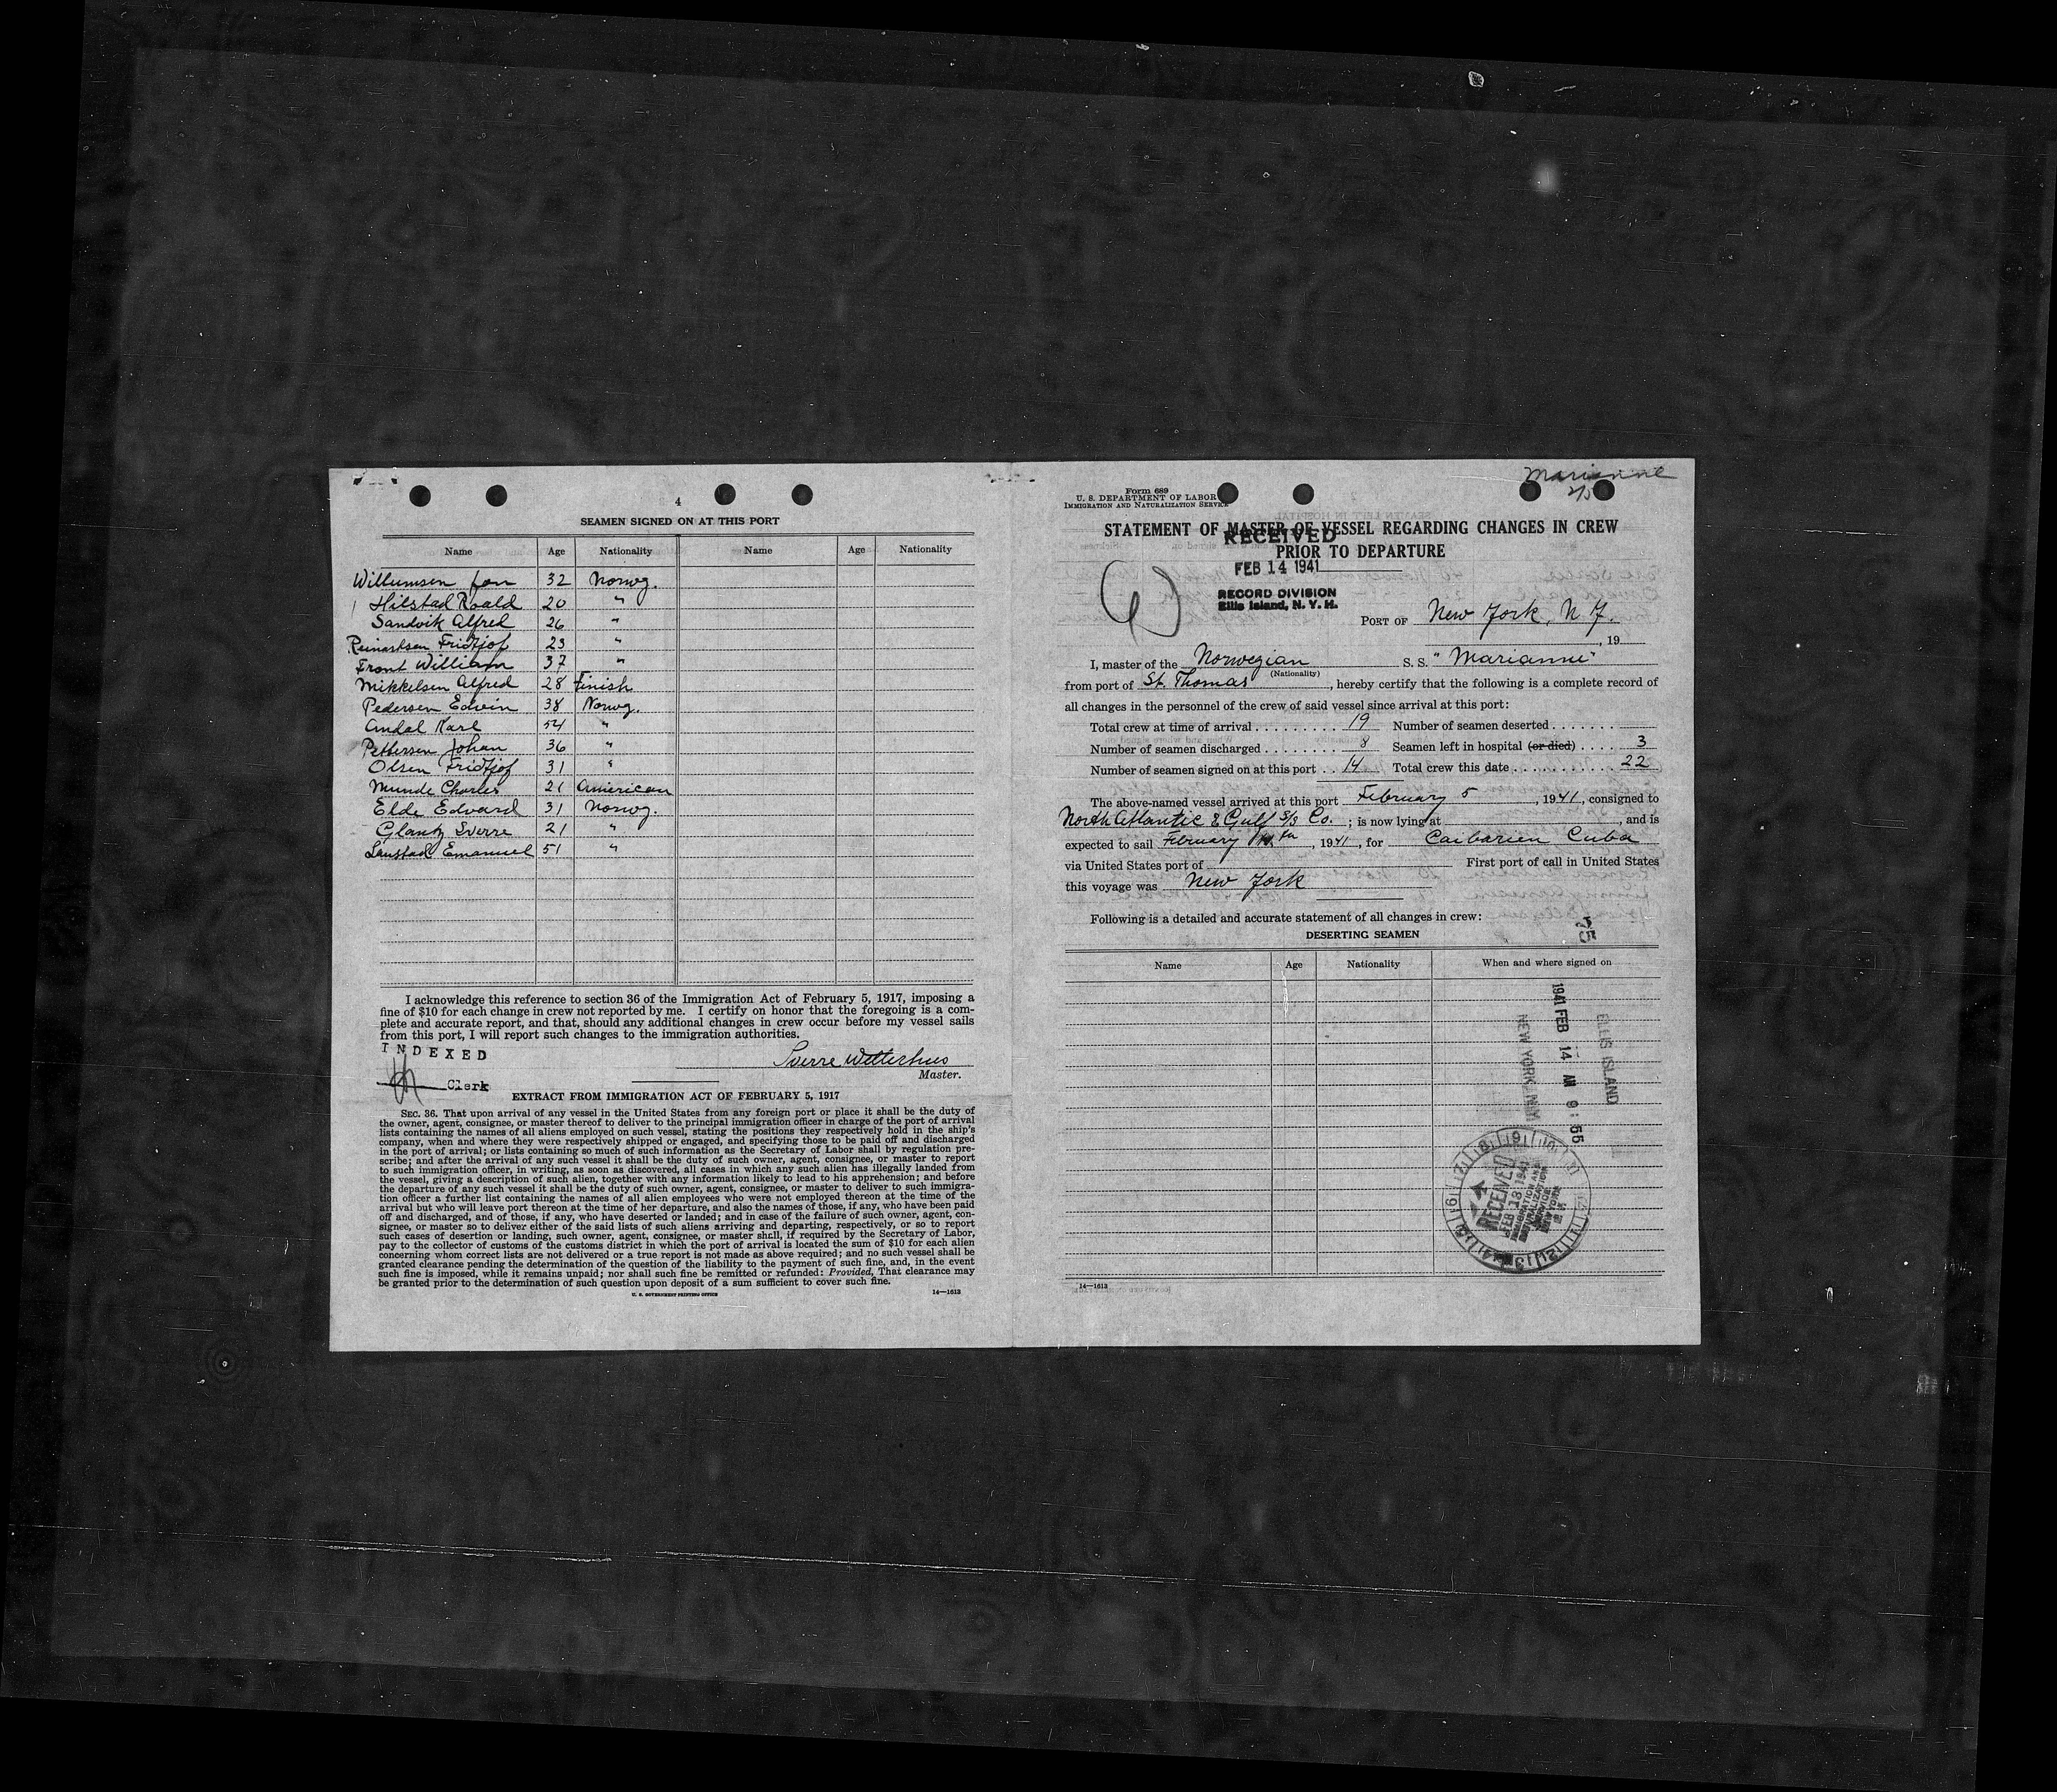 4
SEAMEN SIGNED ON AT THIS PORT
Name Age Nationality Name Age Nationality
Willumsen Jon 32 Norwg.
Hilstad Roald 20 "
Sandvik Alfred 26 "
Reinartsen Fridtjof 23 "
Front William 37 "
Mikkelsen Alfred 28 Finish
Pedersen Edwin 38 Norwg.
Andal Karl 54 "
Pettersen Johan 36 "
Olsen Fridtjof 31 "
Munde Charles 21 American
Elde Edvard 31 Norwg.
Glantz Sverre 21 "
Emanuel 51 "
I acknowledge this reference to section 36 of the Immigration Act of February 5, 1917, imposing a
fine of $10 for each change in crew not reported by me. I certify on honor that the foregoing is a com-
plete and accurate report, and that, should any additional changes in crew occur before my vessel sails
from this port, I will report such changes to the immigration authorities.
INDEXED
Sverre Wetterhus
Master.
Clerk
EXTRACT FROM IMMIGRATION ACT OF FEBRUARY 5, 1917
SEC. 36. That upon arrival of any vessel in the United States from any foreign port or place it shall be the duty of
the owner, agent, consignee, or master thereof to deliver to the principal immigration officer in charge of the port of arrival
lists containing the names of all aliens employed on such vessel, stating the positions they respectively hold in the ship's
company, when and where they were respectively shipped or engaged, and specifying those to be paid off and discharged
in the port of arrival; or lists containing so much of such information as the Secretary of Labor shall by regulation pre-
scribe; and after the arrival of any such vessel it shall be the duty of such owner, agent, consignee, or master to report
to such immigration officer, in writing, as soon as discovered, all cases in which any such alien has illegally landed from
the vessel, giving a description of such alien, together with any information likely to lead to his apprehension; and before
the departure of any such vessel it shall be the duty of such owner, agent, consignee, or master to deliver to such immigra-
tion officer a further list containing the names of all alien employees who were not employed thereon at the time of the
arrival but who will leave port thereon at the time of her departure, and also the names of those, if any, who have been paid
off and discharged, and of those, if any, who have deserted or landed; and in case of the failure of such owner, agent, con-
signee, or master so to deliver either of the said lists of such aliens arriving and departing, respectively, or so to report
such cases of desertion or landing, such owner, agent, consignee, or master shall, if required by the Secretary of Labor,
pay to the collector of customs of the customs district in which the port of arrival is located the sum of $10 for each alien
concerning whom correct lists are not delivered or a true report is not made as above required; and no such vessel shall be
granted clearance pending the determination of the question of the liability to the payment of such fine, and, in the event
such fine is imposed, while it remains unpaid; nor shall such fine be remitted or refunded: Provided, That clearance may
be granted prior to the determination of such question upon deposit of a sum sufficient to cover such fine.
U. S. GOVERNMENT PRINTING OFFICE 14—1613
Marianne
2/5
Form 689
U. S. DEPARTMENT OF LABOR
IMMIGRATION AND NATURALIZATION SERVICE
STATEMENT OF MASTER OF VESSEL REGARDING CHANGES IN CREW
PRIOR TO DEPARTURE
RECEIVED
FEB 14 1941
RECORD DIVISION
Ellis Island, N. Y. H.
PORT OF New York, N.Y.
, 19
I, master of the Norwegian S. S. "Marianne"
(Nationality)
from port of St. Thomas, hereby certify that the following is a complete record of
all changes in the personnel of the crew of said vessel since arrival at this port:
Total crew at time of arrival 19 Number of seamen deserted
Number of seamen discharged 8 Seamen left in hospital (or died) 3
Number of seamen signed on at this port 14 Total crew this date 22
The above-named vessel arrived at this port February 5, 1941, consigned to
North Atlantic & Gulf S/S Co.; is now lying at , and is
expected to sail February , 1941, for Caibarien Cuba
via United States port of First port of call in United States
this voyage was New York
Following is a detailed and accurate statement of all changes in crew:
DESERTING SEAMEN
75
Name Age Nationality When and where signed on
1941 FEB 14 AM 9:55
ELLIS ISLAND
NEW YORK
RECEIVED
FEB 13 1941
IMMIGRATION AND
NATURALIZATION
SERVICE
NEW YORK
14—1613